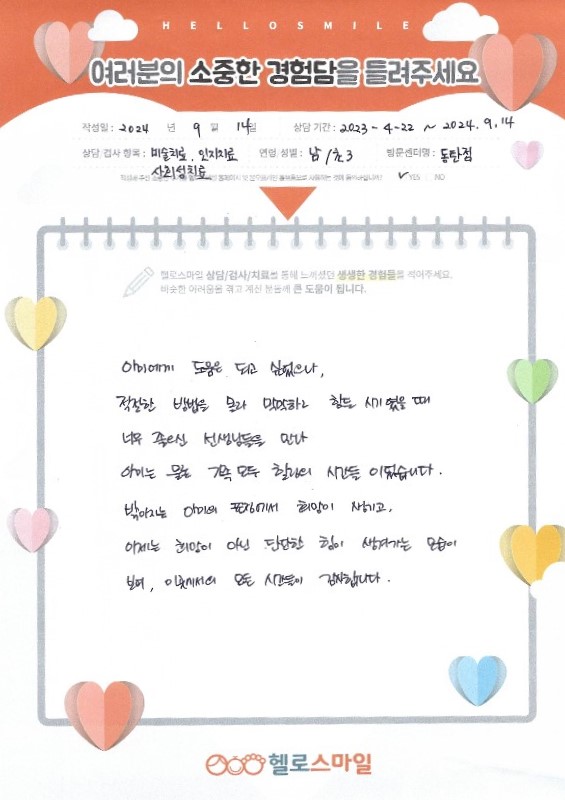 HELLOSMILE
여러분의 소중한 경험담을 들려주세요
작성일 : 2024 년 9 월 14일 상담 기간 : 2023-4-22 ~ 2024.9.14
상담/검사 항목 : 미술치료, 인지치료 연령/성별 : 남/초3 방문센터명 : 동탄점
사회성치료
YES NO
헬로스마일 상담/검사/치료를 통해 느끼셨던 생생한 경험들을 적어주세요.
비슷한 어려움을 겪고 계신 분들께 큰 도움이 됩니다.
아이에게 도움은 되고 싶었으나,
적절한 방법을 몰라 막막하고 힘든 시기였을 때
너무 좋으신 선생님들을 만나
아이는 물론 가족 모두 힐링의 시간들 이었습니다.
밝아지는 아이의 표정에서 희망이 생기고,
이제는 희망이 아닌 단단한 힘이 생겨가는 모습이
보여, 이곳에서의 모든 시간들이 감사합니다.
헬로스마일